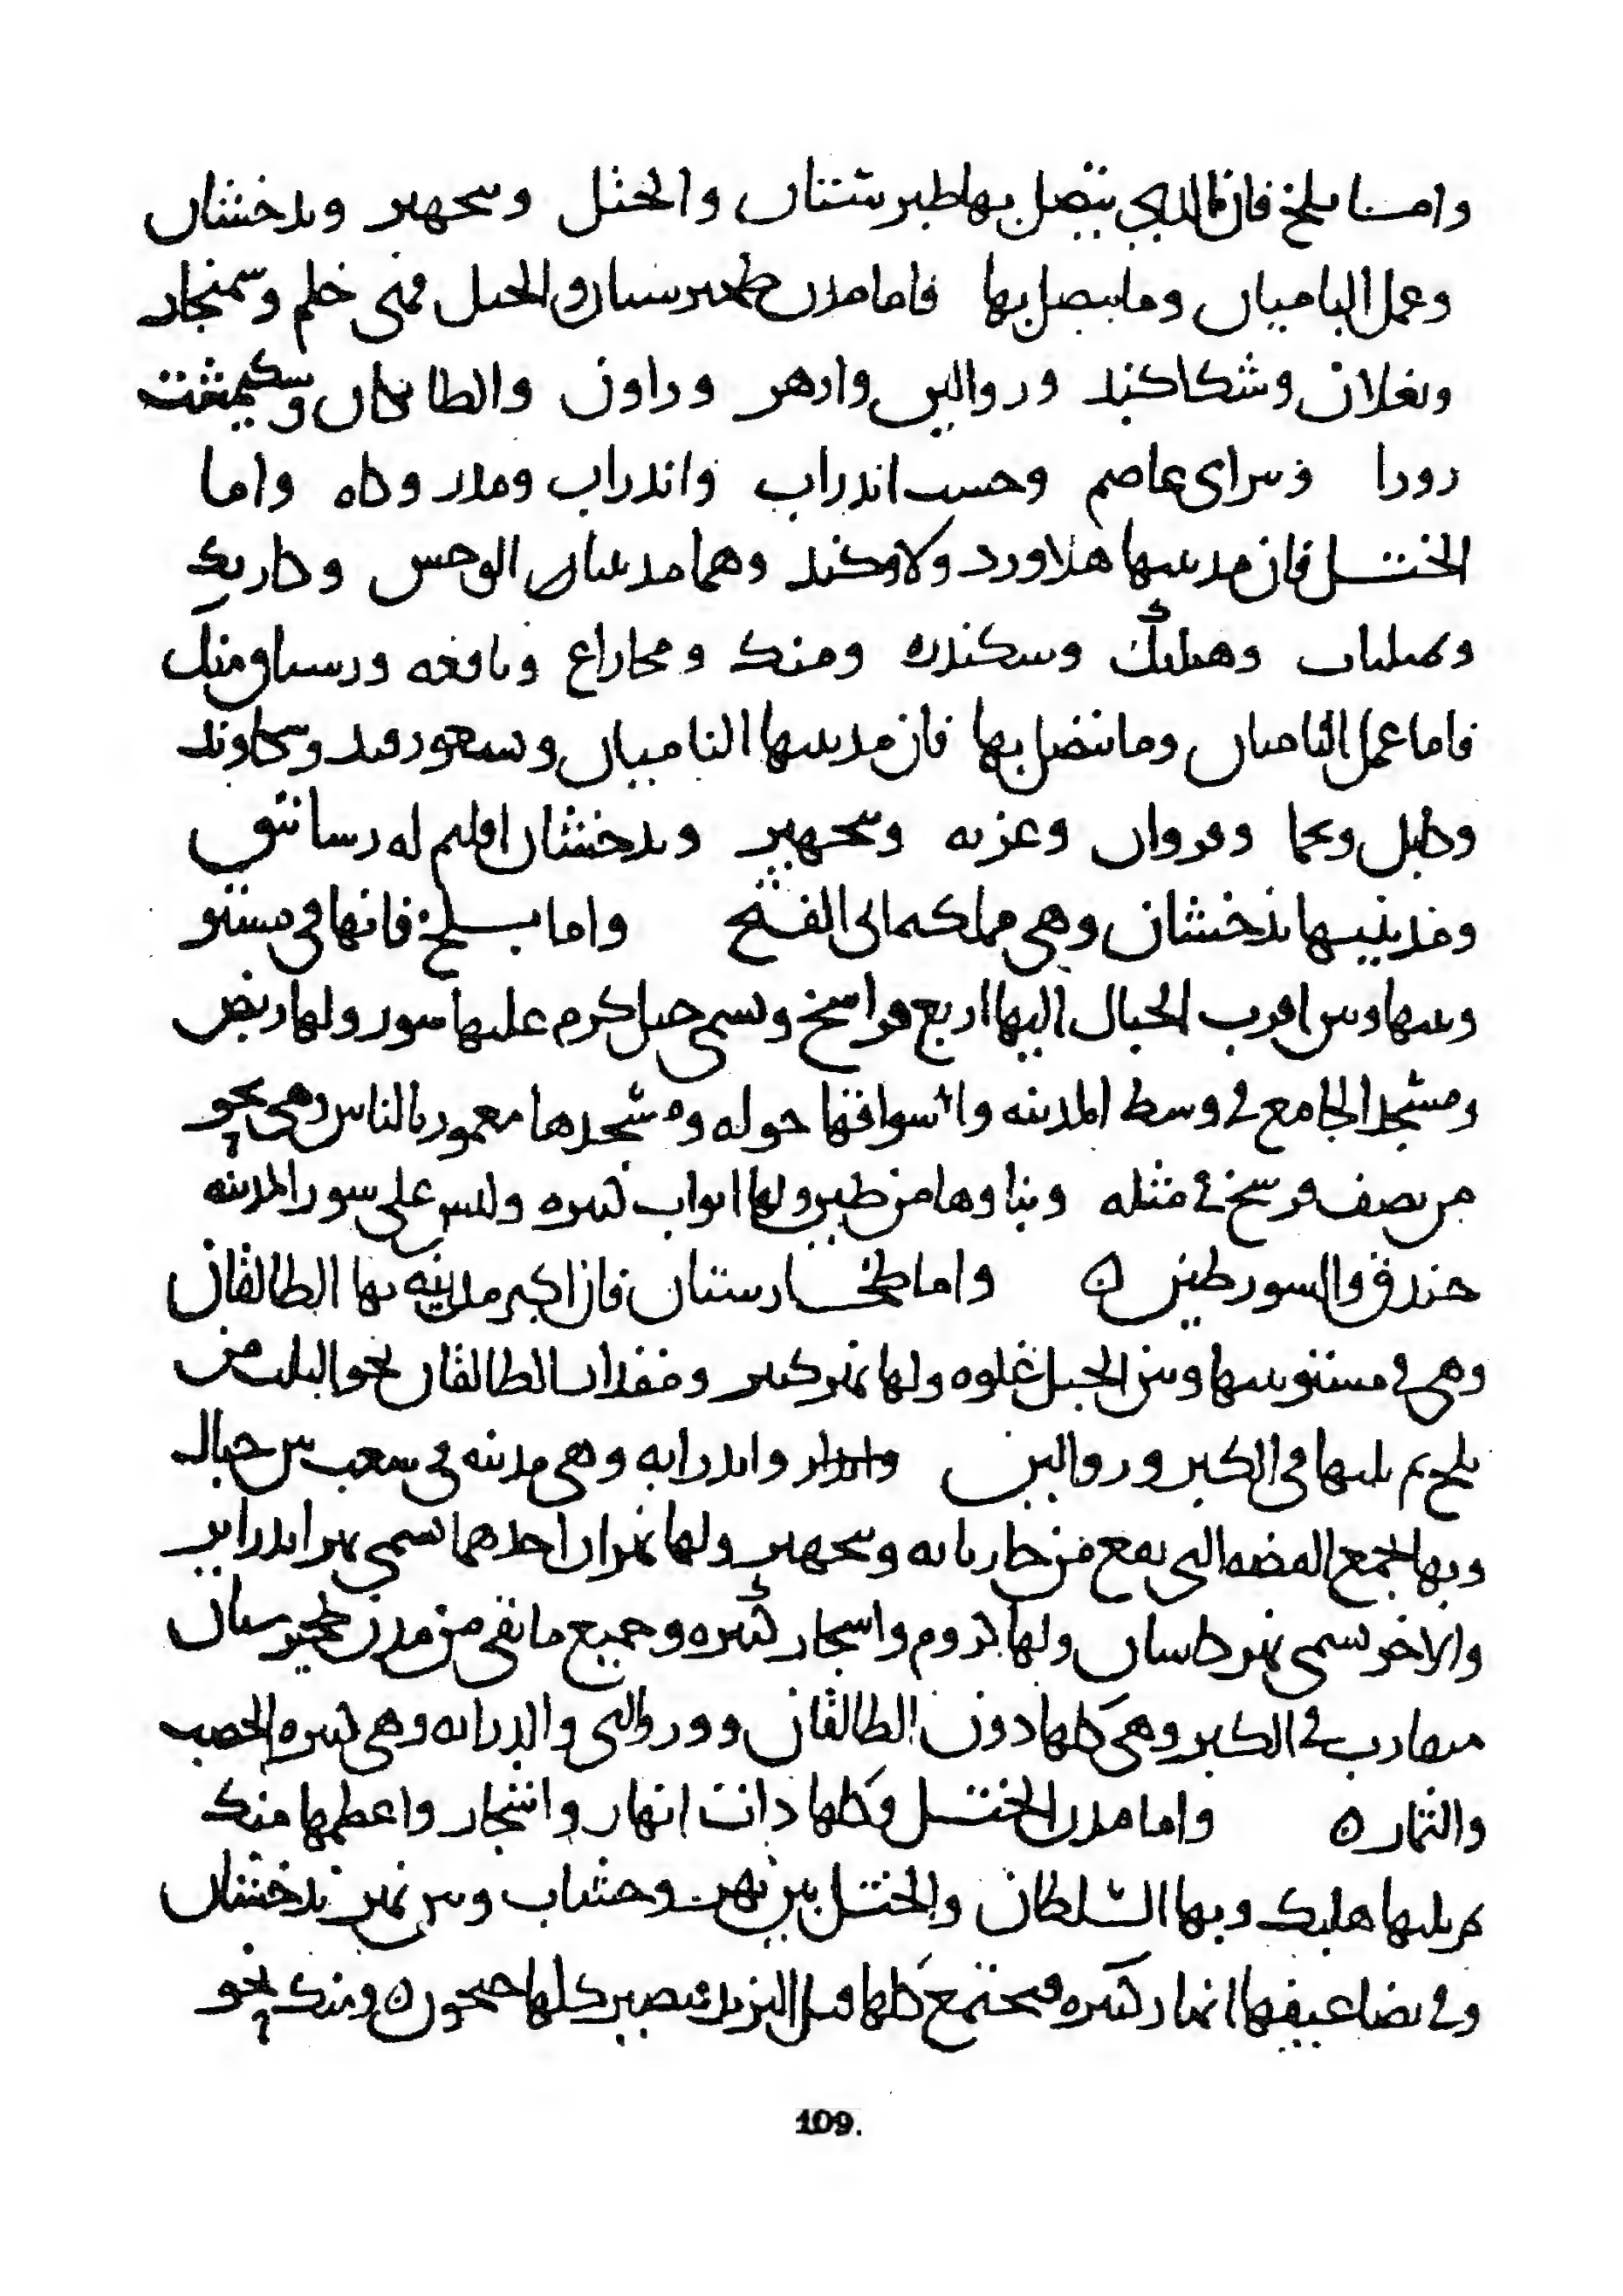 وامـــا بلخ فان الذي يتصل بها طبرستان والختل وبنجهير وبدخشان
وعمل الباميان وما يتصل بها فاما مدن طخيرستان والختل فهى خلم وسمنجان
وبغلان وشكاكند وروالين وارهر وراون والطايكان وسكيمشت
رورا وسراى عاصم وخست اندراب واندراب ومدر وكاه واما
الختـــل فان مدينتها هلاورد ولاوكند وهما مدينتان الوخش وكاربك
وتمليات وهلبك وسكندره ومنك وفاراغ وبافعه ورستاق منك
فاما عمل الباميان وما يتصل بها فان مدينتها الباميان وسعورقند وسكاوند
وكابل ونجرا وفروان وغزنه وبنجهير وبدخشان اقليم له رساتيق
ومدينتها بدخشان وهي مملكه ابى الفتح واما بـــلخ فانها فى مستو
وبينها وبين اقرب الجبال اليها اربع فراسخ ويسمى جبل كرم عليها سور ولها ربض
ومسجد الجامع في وسط المدينه واسواقها حوله ومسجدها معمور بالناس وهي نحو
من نصف فرسخ في مثله وبناوها من طين ولها ابواب كثيره وليس على سور المدينه
خندق والسور طين ن واما طخـــارستان فان اكبر مدينه بها الطالقان
وهي في مستو بينها وبين الجبل غلوه ولها نهر كبير ومقدار الطالقان نحو الثلث من
بلخ ثم يليها في الكبر وروالين واندرابه وهي مدينه في شعب بين جبال
وبها تجمع الفضه التى تقع من جاربايه وبنجهير ولها نهران احدهما يسمى نهر اندراب
والاخر يسمى نهر كاسان ولها كروم واشجار كثيره وجميع ما بقي من مدن طخيرستان
متقارب في الكبر وهي كلها دون الطالقان وورواليز واندرابه وهي كثيره الخصب
والثمار ه واما مدن الختـــل وكلها ذات انهار واشجار واعظمها منك
ثم يليها هلبك وبها السلطان والختـــل بين نهر وخشاب وبين نهر بدخشان
وفي تضاعيفها انهار كثيره فتجتمع كلها قبل الترمذ فتصير كلها جيحون ن ومنك نحو
109.